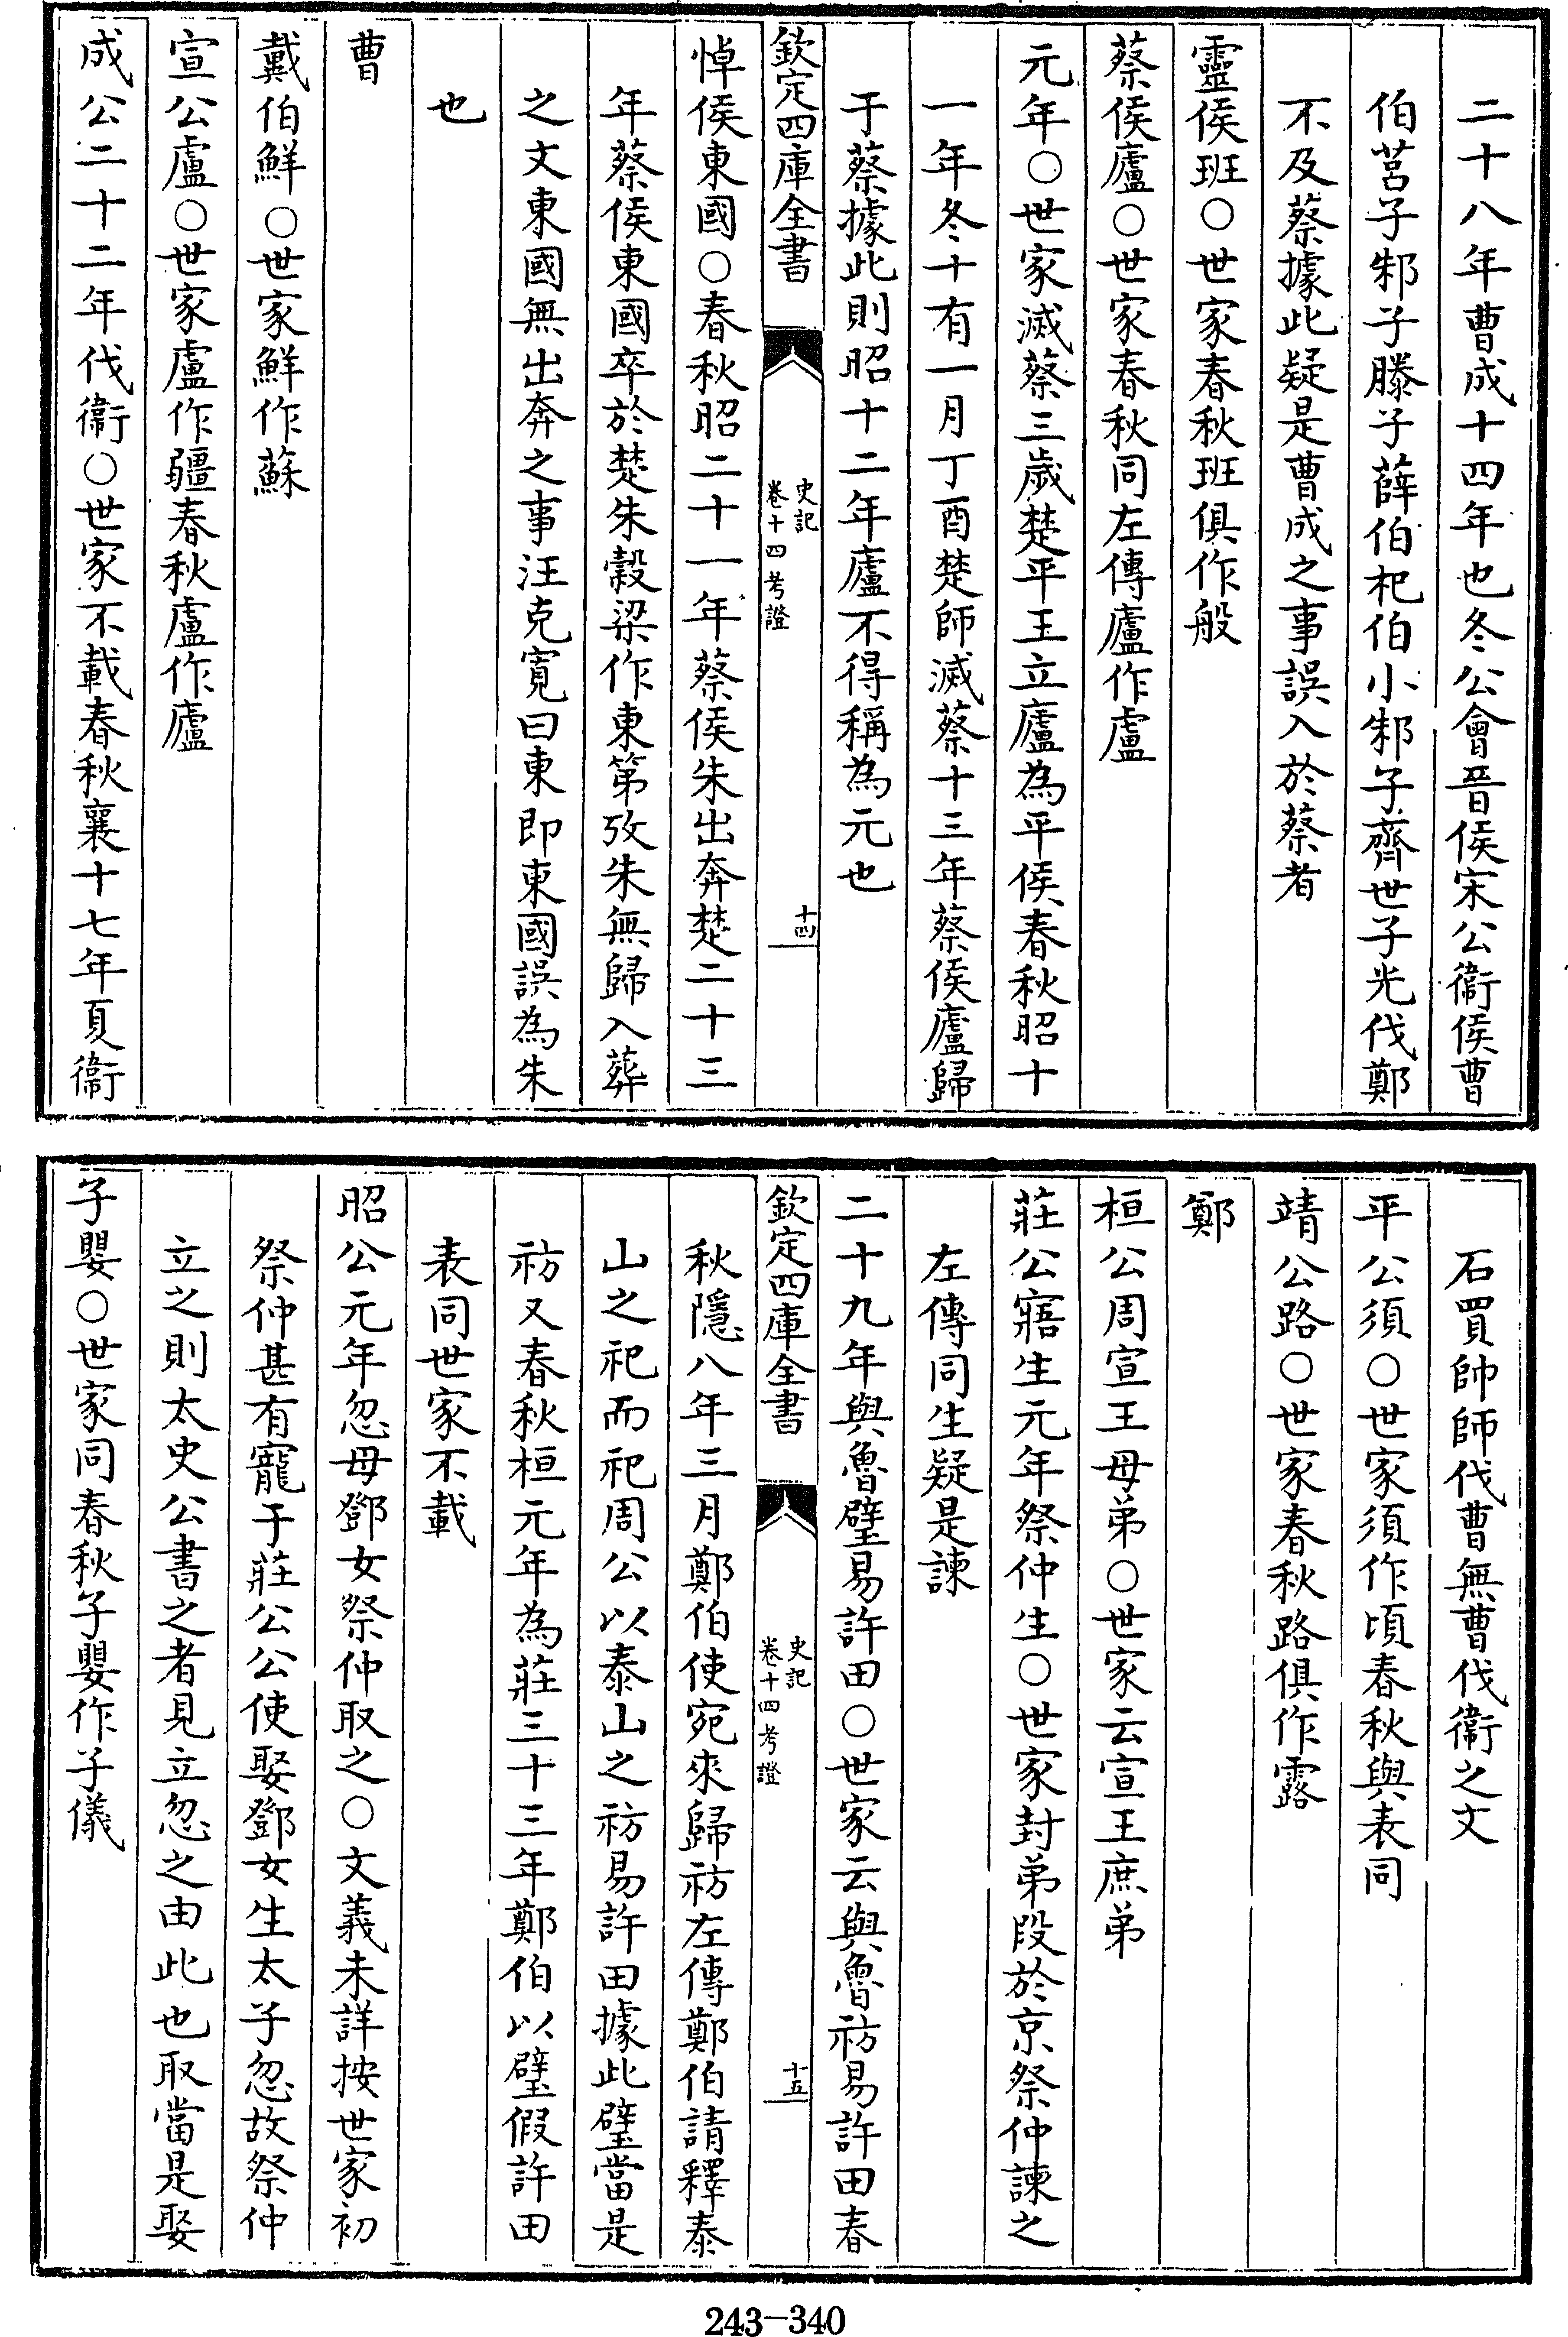 二十八年曹成十四年也冬公會晉侯宋公衞侯曹
伯莒子邾子滕子薛伯杞伯小邾子齊世子光伐鄭
不及蔡據此疑是曹成之事誤入於蔡者
靈侯班○世家春秋班俱作般
蔡侯廬○世家春秋同左傳廬作盧
元年○世家滅蔡三歲楚平王立廬為平侯春秋昭十
一年冬十有一月丁酉楚師滅蔡十三年蔡侯廬歸
于蔡據此則昭十二年廬不得稱為元也
欽定四庫全書
史記
卷十四考證
十四
悼侯東國○春秋昭二十一年蔡侯朱出奔楚二十三
年蔡侯東國卒於楚朱穀梁作東第攷朱無歸入葬
之文東國無出奔之事汪克寬曰東即東國誤為朱
也
曹
戴伯鮮○世家鮮作蘇
宣公盧○世家盧作疆春秋盧作廬
成公二十二年伐衞○世家不載春秋襄十七年夏衞
石買帥師伐曹無曹伐衞之文
平公須○世家須作頃春秋與表同
靖公路○世家春秋路俱作露
鄭
桓公周宣王母弟○世家云宣王庶弟
莊公寤生元年祭仲生○世家封弟段於京祭仲諫之
左傳同生疑是諫
二十九年與魯璧易許田○世家云與魯祊易許田春
欽定四庫全書
史記
卷十四考證
十五
秋隱八年三月鄭伯使宛來歸祊左傳鄭伯請釋泰
山之祀而祀周公以泰山之祊易許田據此璧當是
祊又春秋桓元年為莊三十三年鄭伯以璧假許田
表同世家不載
昭公元年忽母鄧女祭仲取之○文義未詳按世家初
祭仲甚有寵于莊公公使娶鄧女生太子忽故祭仲
立之則太史公書之者見立忽之由此也取當是娶
子嬰○世家同春秋子嬰作子儀
243-340